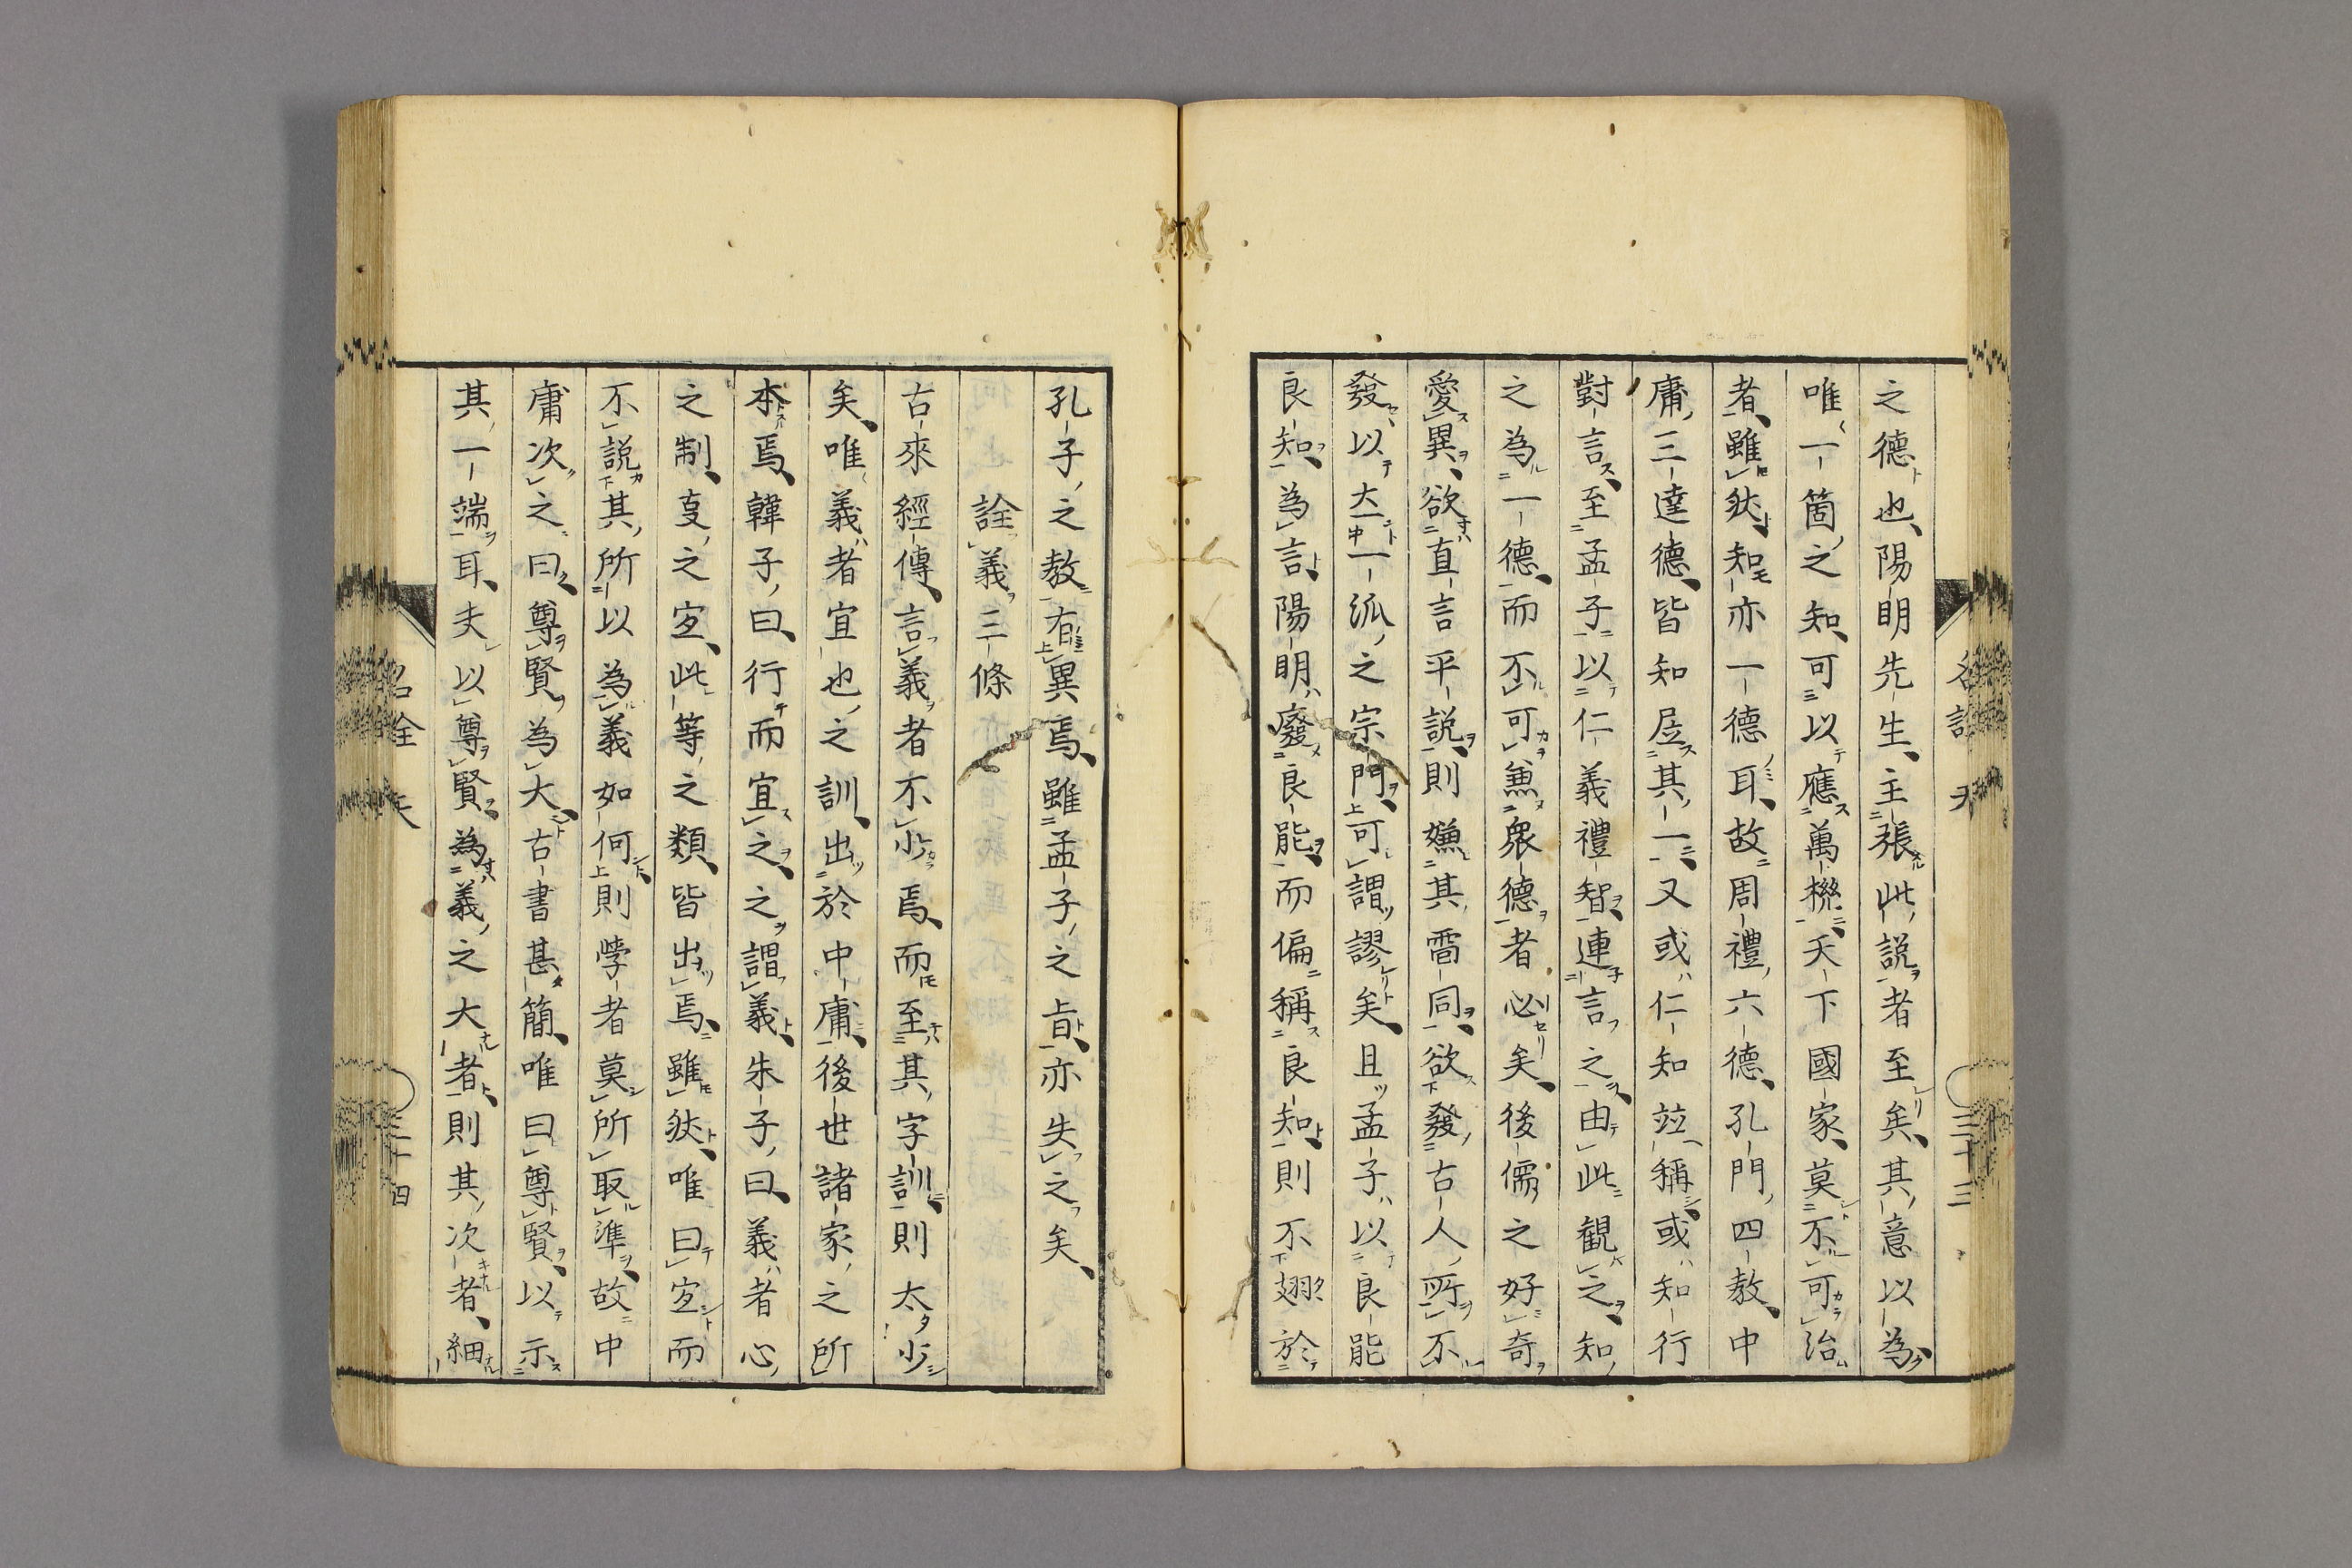 之德也陽明先生主張此說者至矣其意以為
唯一箇之知可以應萬機天下國家莫不可治
者雖然知亦一德耳故周禮六德孔門四教中
庸三達德皆知居其一又或仁知竝稱或知行
對言至孟子以仁義禮智連言之由此觀之知
之為一德而不可兼眾德者必矣後儒之好奇
愛異欲直言平說則嫌其雷同欲發古人所不
發以大一派之宗門可謂謬矣且孟子以良能
良知為言陽明廢良能而偏稱良知則不翅於
孔子之教有異焉雖孟子之旨亦失之矣
詮義三條
古來經傳言義者不少焉而至其字訓則太少
矣唯義者宜也之訓出於中庸後世諸家之所
本焉韓子曰行而宜之之謂義朱子曰義者心
之制事之宜此等之類皆出焉雖然唯曰宜而
不說其所以為義如何則學者莫所取準故中
庸次之曰尊賢為大古書甚簡唯曰尊賢以示
其一端耳夫以尊賢為義之大者則其次者細
名詮 天
三十三
名詮 天
三十四